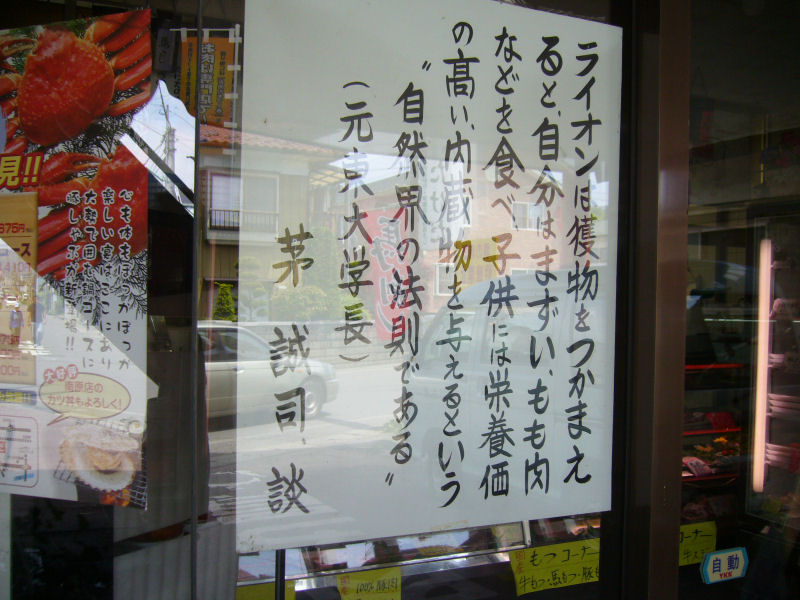 ライオンは獲物をつかまえ
ると、自分はまずい、もも肉
などを食べ、子供には栄養価
の高い、内蔵物を与えるという
“自然界の法則である”
（元東大学長）
茅 誠司、談
見!!
心も体もぽっかぽっか
楽しい宴はここにあり
大勢で囲む鍋コースに
豚しゃぶが新登場!!
大好評
塩原店の
カツ丼もよろしく!
もつコーナー
牛もつ・馬もつ・豚も
100%豚
コーナー
牛ス
自動
YKK